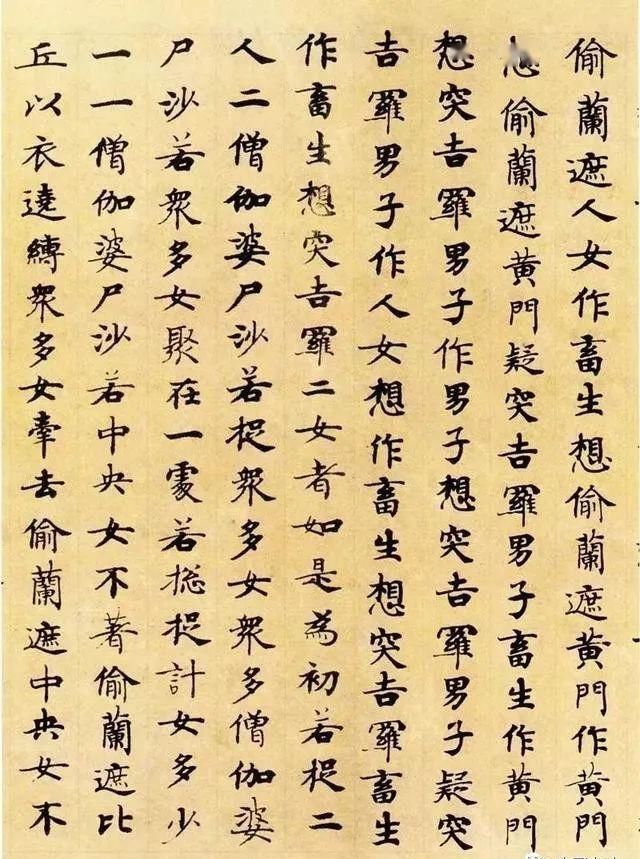 偷蘭遮人女作畜生想偷蘭遮黃門作黃門
想偷蘭遮黃門疑突吉羅男子畜生作黃門
想突吉羅男子作男子想突吉羅男子疑突
吉羅男子作人女想作畜生想突吉羅畜生
作畜生想突吉羅二女者如是為初若捉二
人二僧伽婆尸沙若捉眾多女眾多僧伽婆
尸沙若眾多女聚在一處若捴捉計女多少
一一僧伽婆尸沙若中央女不著偷蘭遮比
丘以衣遶縛眾多女牽去偷蘭遮中央女不